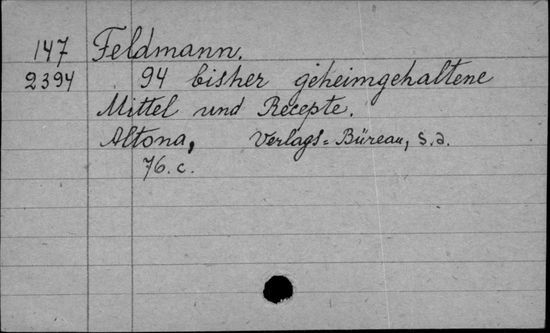 147 Feldmann.
2394 94 bisher geheimgehaltene
Mittel und Recepte.
Altona, Verlags=Büreau, s.a.
76. c.